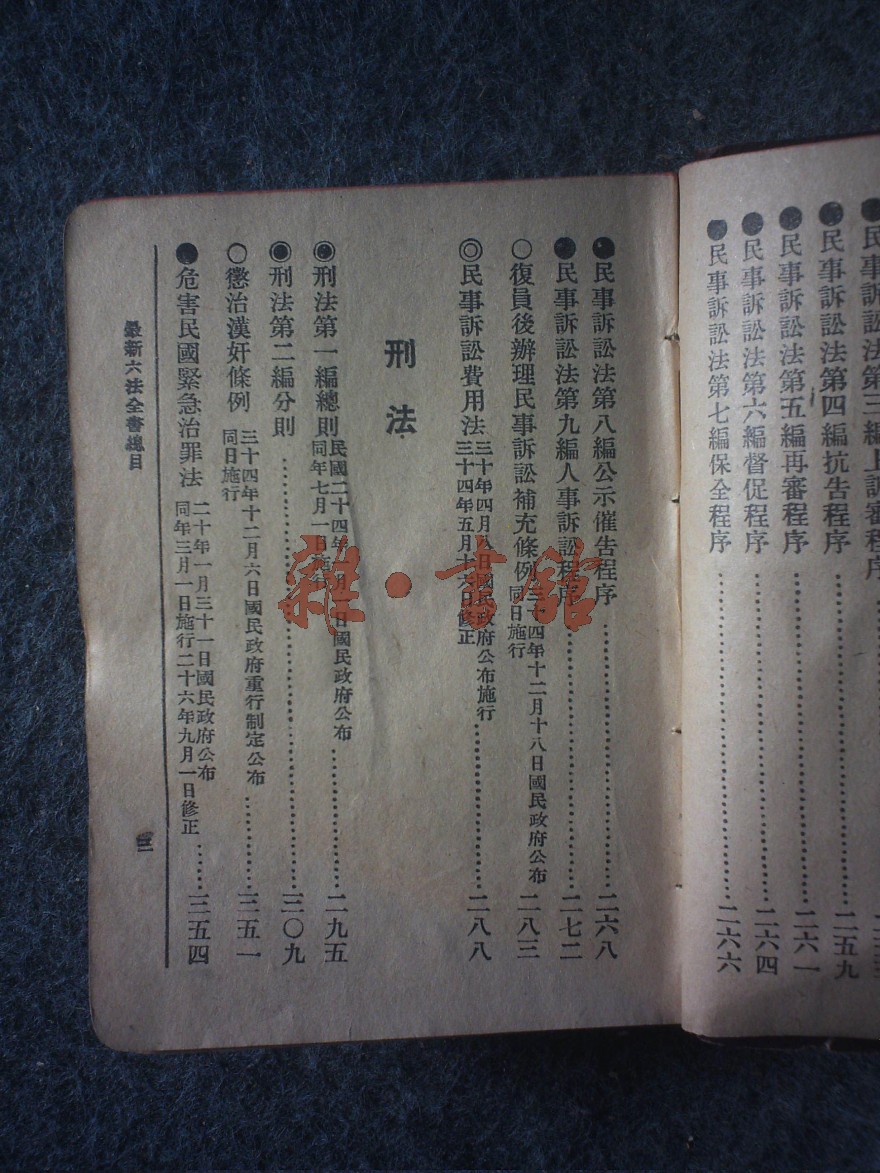 民事訴訟法第三編上訴審程序
民事訴訟法第四編抗告程序……二五九
民事訴訟法第五編再審程序……二六一
民事訴訟法第六編督促程序……二六四
民事訴訟法第七編保全程序……二六六
民事訴訟法第八編公示催告程序……二六八
民事訴訟法第九編人事訴訟程序……二七二
復員後辦理民事訴訟補充條例 三十四年十二月十八日國民政府公布 同日施行 二八三
民事訴訟費用法 三十年四月八日國民政府公布施行 三十四年五月十六日修正……二八八
刑法
刑法第一編總則 民國二十四年一月一日國民政府公布 同年七月一日施行……二九五
刑法第二編分則……三〇九
懲治漢奸條例 三十四年十二月六日國民政府重行制定公布 同日施行……三五一
危害民國緊急治罪法 二十年一月三十一日國民政府公布 同年三月一日施行二十六年九月一日修正……三五四
最新六法全書總目
三
雜·書館